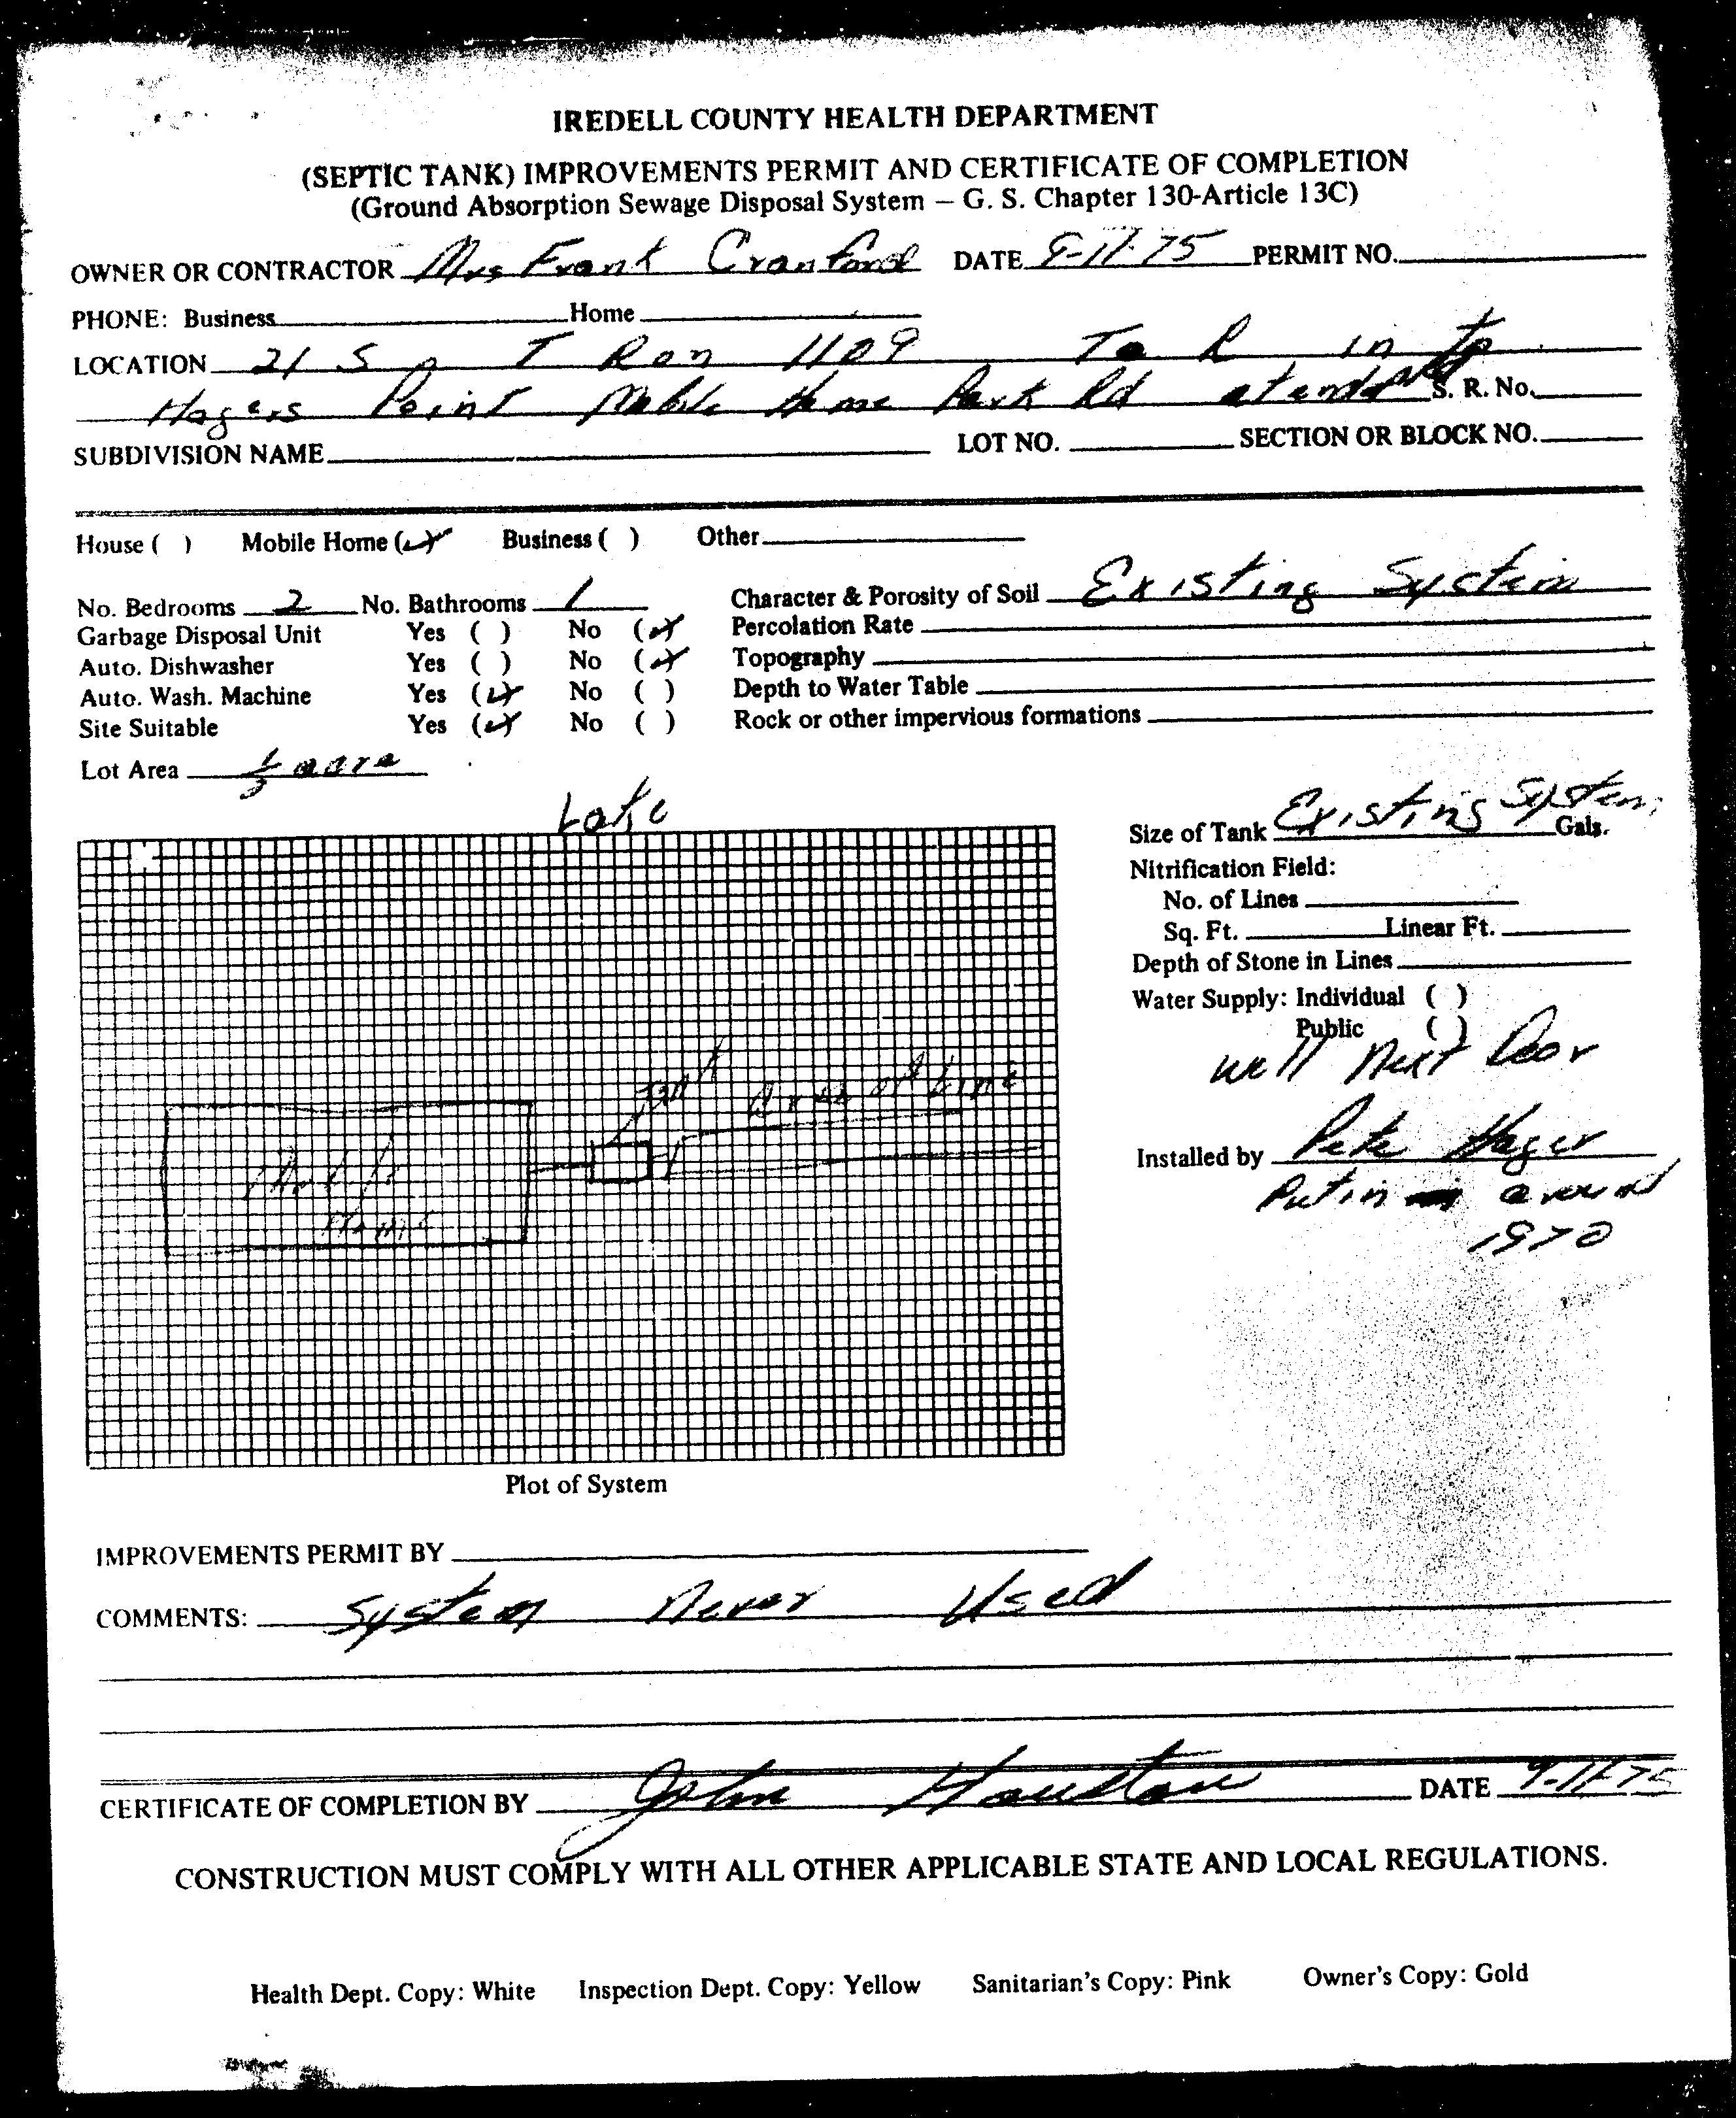 IREDELL COUNTY HEALTH DEPARTMENT
(SEPTIC TANK) IMPROVEMENTS PERMIT AND CERTIFICATE OF COMPLETION
(Ground Absorption Sewage Disposal System – G. S. Chapter 130-Article 13C)
OWNER OR CONTRACTOR Mrs Frank Cranford DATE 9-11-75 PERMIT NO.
PHONE: Business Home
LOCATION 21 S T R on 1109 To R in to
Hagers Point Mobile Home Park Rd at end of S. R. No.
SUBDIVISION NAME LOT NO. SECTION OR BLOCK NO.
House ( ) Mobile Home (✓) Business ( ) Other
No. Bedrooms 2 No. Bathrooms 1 Character & Porosity of Soil Existing System
Garbage Disposal Unit Yes ( ) No (✓) Percolation Rate
Auto. Dishwasher Yes ( ) No (✓) Topography
Auto. Wash. Machine Yes (✓) No ( ) Depth to Water Table
Site Suitable Yes (✓) No ( ) Rock or other impervious formations
Lot Area 1/3 acre
Lake
Size of Tank Existing System Gals.
Nitrification Field:
No. of Lines
Sq. Ft. Linear Ft.
Depth of Stone in Lines
Water Supply: Individual ( )
Public ( )
well next Door
Tank Area of Line
Installed by Pete Hager
Put in around
1970
Mobile
Home
Plot of System
IMPROVEMENTS PERMIT BY
COMMENTS: System Never Used
CERTIFICATE OF COMPLETION BY John Houston DATE 9-11-75
CONSTRUCTION MUST COMPLY WITH ALL OTHER APPLICABLE STATE AND LOCAL REGULATIONS.
Health Dept. Copy: White Inspection Dept. Copy: Yellow Sanitarian's Copy: Pink Owner's Copy: Gold